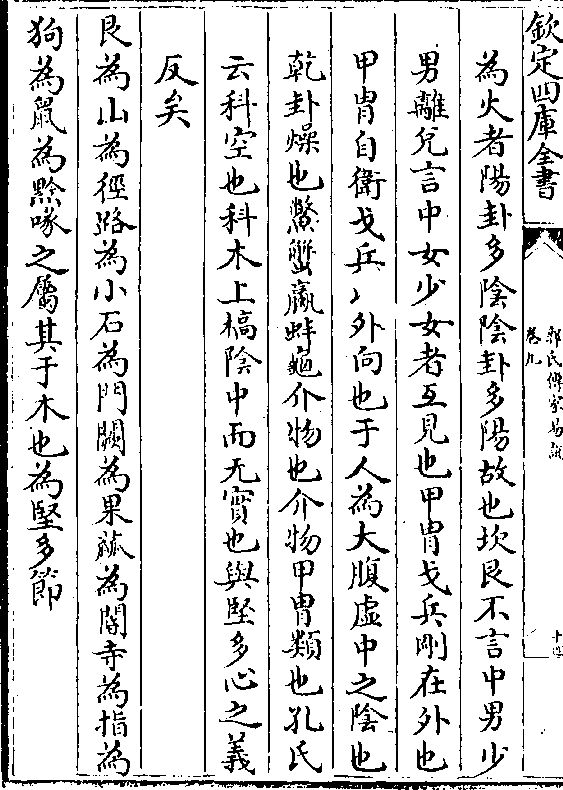 欽定四庫全書
郭氏傳家易說
卷九
十四
為火者陽卦多陰陰卦多陽故也坎艮不言中男少
男離兌言中女少女者互見也甲胄戈兵剛在外也
甲胄自衛戈兵兵外向也于人為大腹虛中之陰也
乾卦燥也鱉蟹蠃蚌龜介物也介物甲胄類也孔氏
云科空也科木上槁陰中而无實也與堅多心之義
反矣
艮為山為徑路為小石為門闕為果蓏為閽寺為指為
狗為鼠為黔喙之屬其于木也為堅多節